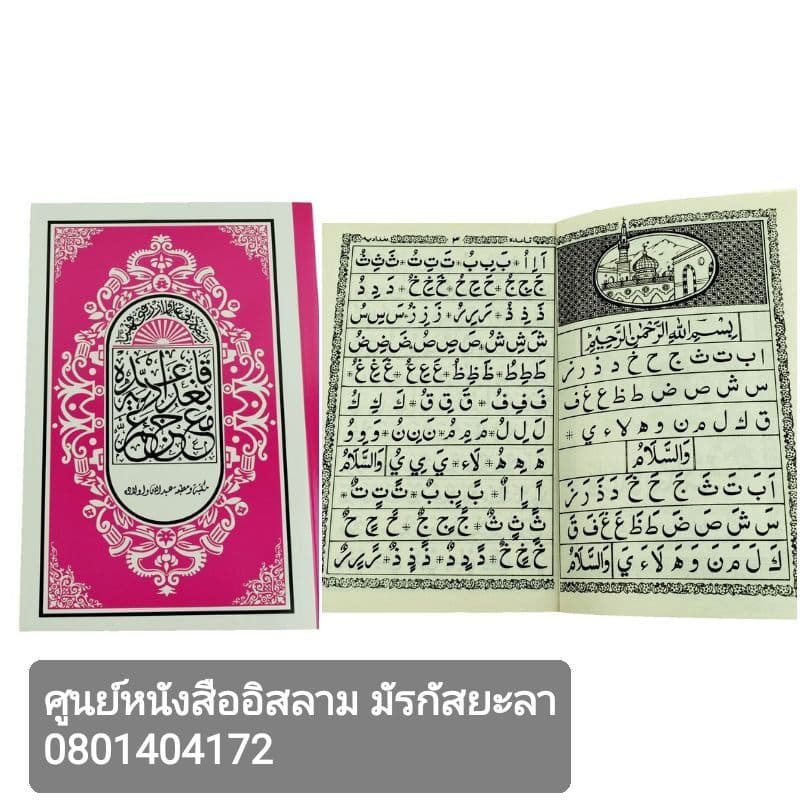 قاعدة بغدادية
مع جزء عم
بِسْمِ اللهِ الرَّحْمٰنِ الرَّحِيْمِ
ا ب ت ث ج ح خ د ذ ر ز
س ش ص ض ط ظ ع غ ف
ق ك ل م ن و ه لا ء ي *
وَالسَّلَامُ
اَ بَ تَ ثَ جَ حَ خَ دَ ذَ رَ زَ
سَ شَ صَ ضَ طَ ظَ عَ غَ فَ قَ
كَ لَ مَ نَ وَ هَ لَا ءَ يَ وَالسَّلَامُ
٣
اَ اِ اُ * بَ بِ بُ * تَ تِ تُ * ثَ ثِ ثُ
جَ جِ جُ * حَ حِ حُ * خَ خِ خُ * دَ دِ دُ
ذَ ذِ ذُ * رَ رِ رُ * زَ زِ زُ * سَ سِ سُ
شَ شِ شُ * صَ صِ صُ * ضَ ضِ ضُ
طَ طِ طُ * ظَ ظِ ظُ * عَ عِ عُ * غَ غِ غُ
فَ فِ فُ * قَ قِ قُ * كَ كِ كُ
لَ لِ لُ * مَ مِ مُ * نَ نِ نُ * وَ وِ وُ
هَ هِ هُ * لَاء * يَ يِ يُ وَالسَّلَامُ
اً اٍ اٌ * بً بٍ بٌ * تً تٍ تٌ *
ثً ثٍ ثٌ * جً جٍ جٌ * حً حٍ حٌ
خً خٍ خٌ * دً دٍ دٌ * ذً ذٍ ذٌ * رً رٍ رٌ
ศูนย์หนังสืออิสลาม มัรกัสยะลา
0801404172